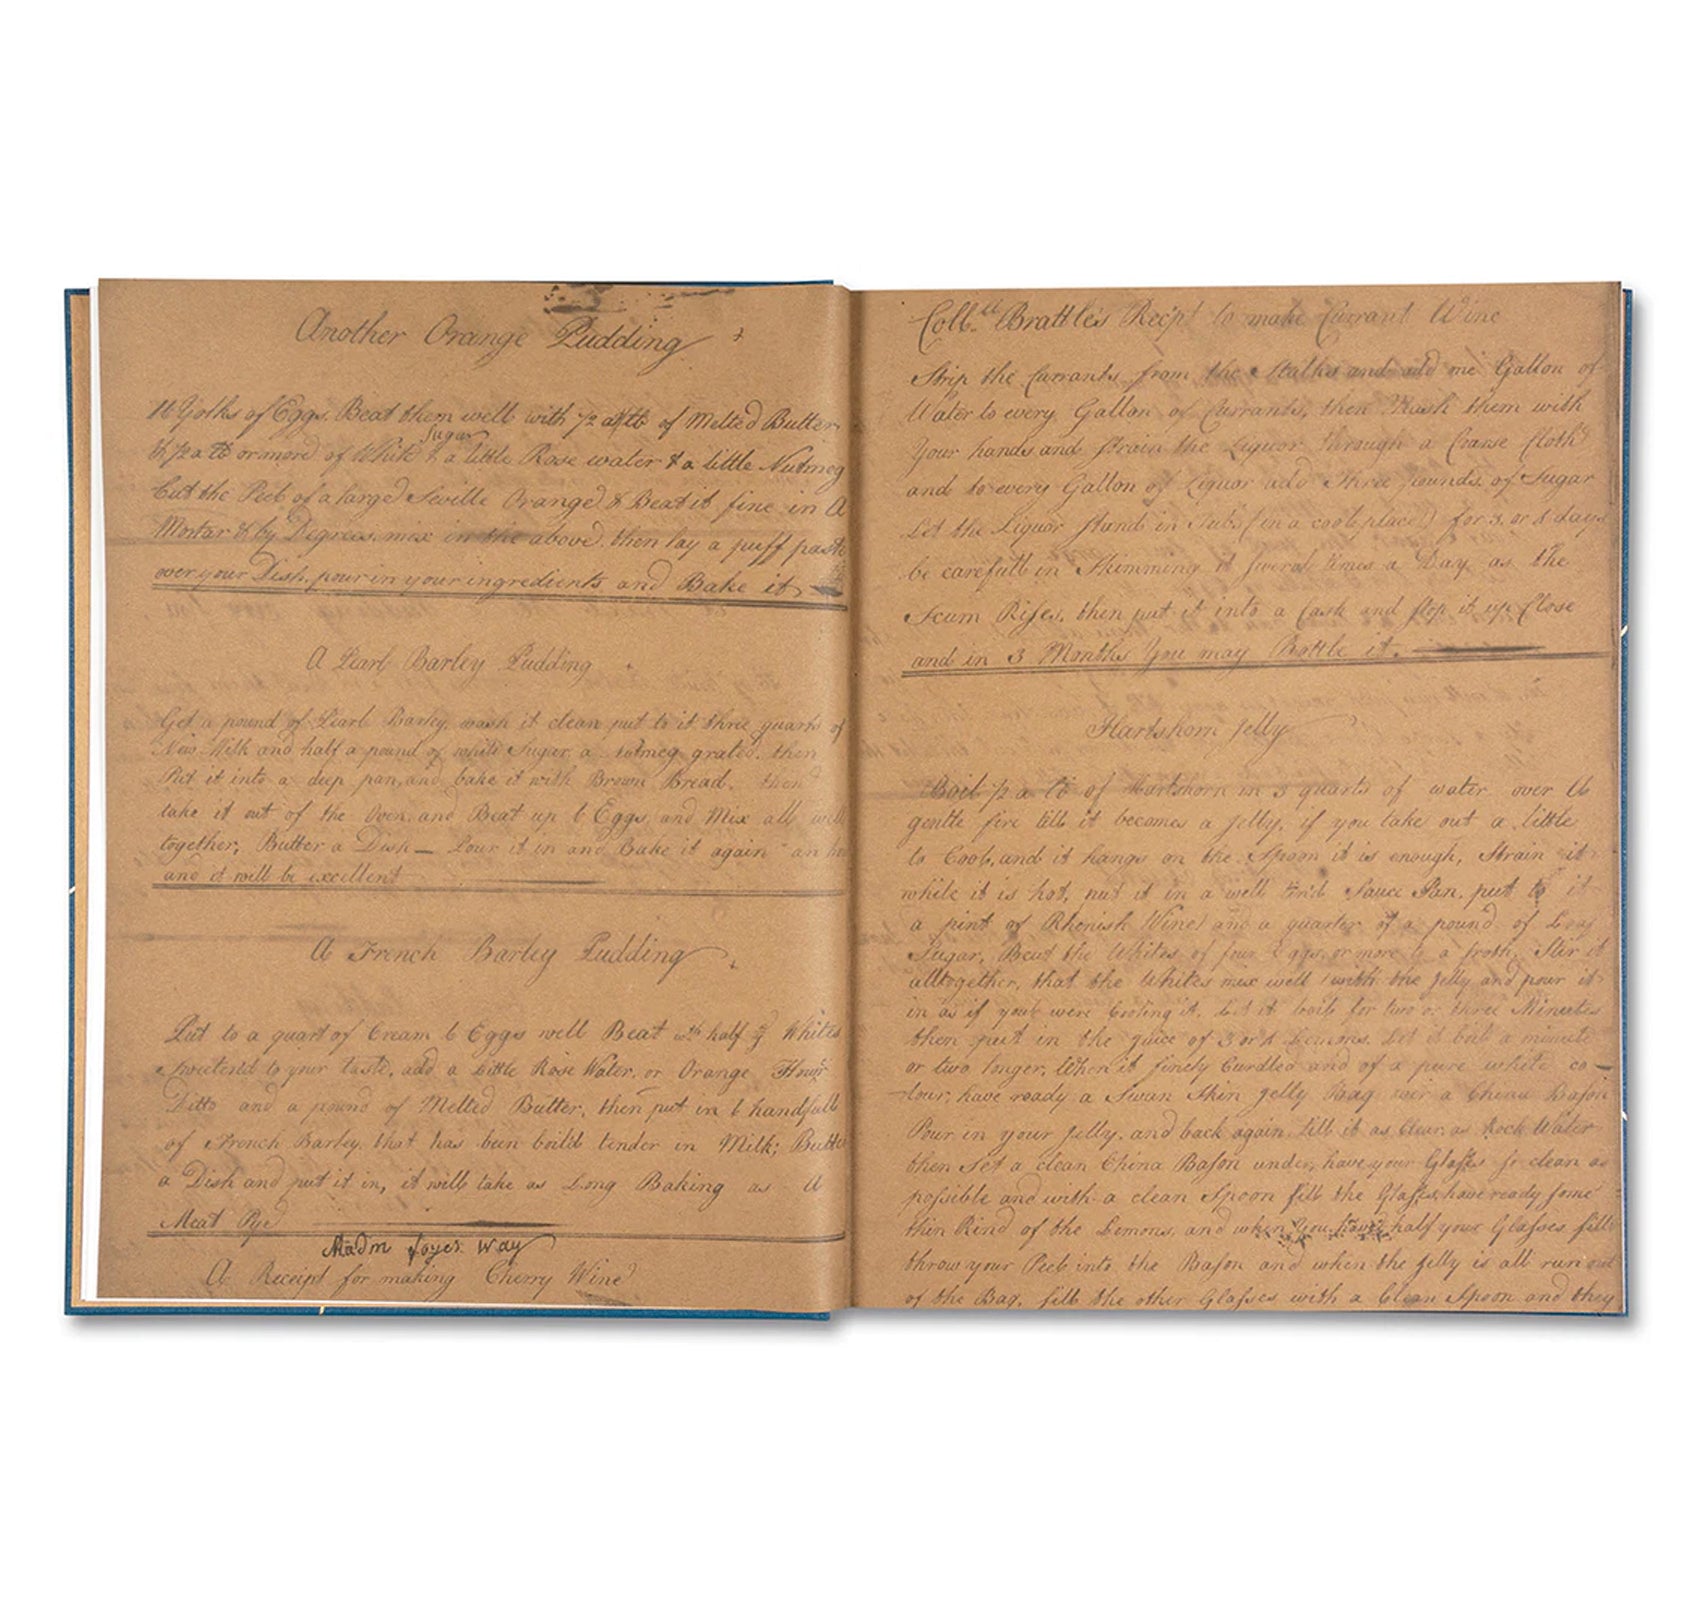 Another Orange Pudding
Yolks of Eggs. Beat them well with 1/2 a lb of Melted Butter
Sugar
& 1/2 a lb or more of White & a little Rose water & a little Nutmeg
Cut the Peel of a large Seville Orange & Beat it fine in A
Mortar & by Degrees mix in the above. then lay a puff paste
over your Dish, pour in your ingredients and Bake it
A Pearl Barley Pudding
Get a pound of Pearl Barley, wash it clean put to it three quarts of
New Milk and half a pound of white Sugar a nutmeg grated. then
Put it into a deep pan, and bake it with Brown Bread. then
take it out of the Oven, and Beat up 6 Eggs, and Mix all well
together, Butter a Dish — Pour it in and Bake it again an
and it will be excellent
A French Barley Pudding
Put to a quart of Cream 6 Eggs well Beat wth half ye Whites
Sweetend to your taste, add a Little Rose Water, or Orange Flour
Ditto and a pound of Melted Butter, then put in 6 handfull
of French Barley, that has been boild tender in Milk; Butter
a Dish and put it in, it will take as Long Baking as A
Meat Pye
Madm Joyes Way
A Receipt for making Cherry Wine
Brattle's Recipt to make Currant Wine
Strip the Currants from the Stalks and add one Gallon of
Water to every Gallon of Currants, then Mash them with
Your hands and strain the Liquor through a Coarse Cloth
and to every Gallon of Liquor add Three pounds of Sugar
Let the Liquor stand in Tubs (in a cool place) for 3 or 4 days
be carefull in Skimming it several times a Day as the
Scum Rises, then put it into a Cask and stop it up Close
and in 3 Months You may Bottle it.
Hartshorn Jelly
Boil 1/2 a lb of Hartshorn in 3 quarts of water over A
gentle fire till it becomes a Jelly, if you take out a little
to Cool, and it hangs on the Spoon it is enough, Strain it
while it is hot, put it in a well tin'd Sauce Pan, put to it
a pint of Rhenish Wine and a quarter of a pound of Loaf
Sugar, Beat the Whites of four Eggs or more to a froth, Stir it
alltogether, that the Whites mix well with the Jelly and pour it
in as if you were Cooling it, Let it boil for two or three Minutes
then put in the juice of 3 or 4 Lemons, Let it boil a minute
or two longer, When it finely Curdled and of a pure white co-
lour, have ready a Swan Skin jelly Bag over a China Bason
Pour in your Jelly, and back again till it as Clear as Rock Water
then Set a clean China Bason under, have your Glasses so clean as
possible and with a clean Spoon fill the Glasses, have ready some
thin Rind of the Lemons, and when you have half your Glasses fill
throw your Peel into the Bason and when the Jelly is all run out
of the Bag, fill the other Glasses with a Clean Spoon and they